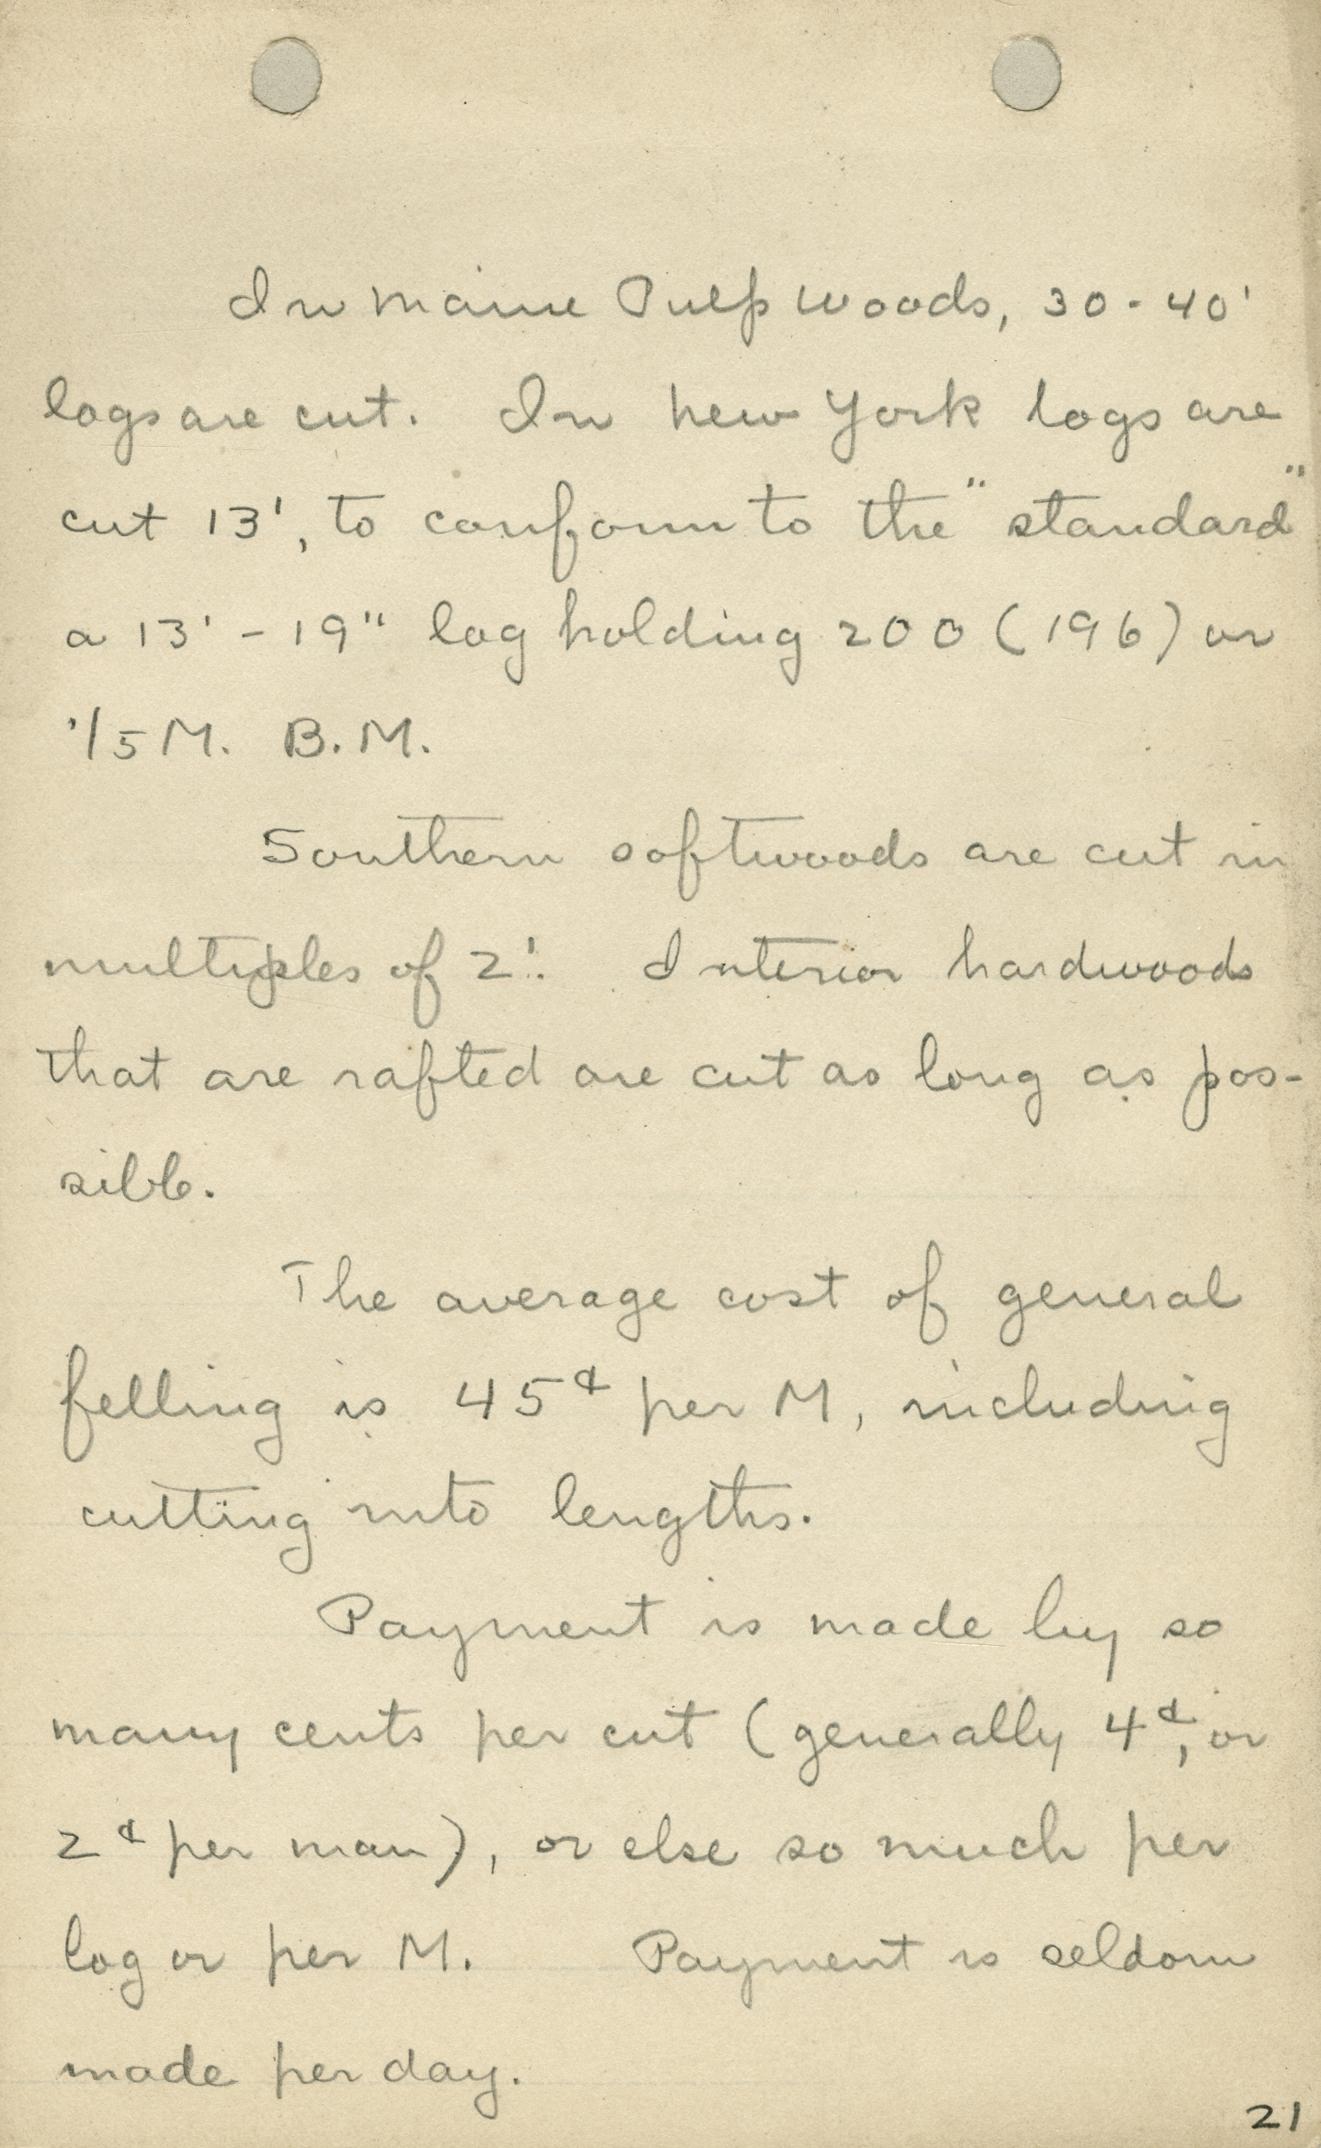 In Maine Pulp woods, 30-40'
logs are cut. In New York logs are
cut 13', to conform to the "standard"
a 13'-19" log holding 200 (196) or
1/5 M. B.M.
Southern softwoods are cut in
multiples of 2'. Interior hardwoods
that are rafted are cut as long as pos-
sible.
The average cost of general
felling is 45¢ per M, including
cutting into lengths.
Payment is made by so
many cents per cut (generally 4¢, or
2¢ per man), or else so much per
log or per M. Payment is seldom
made per day.
21